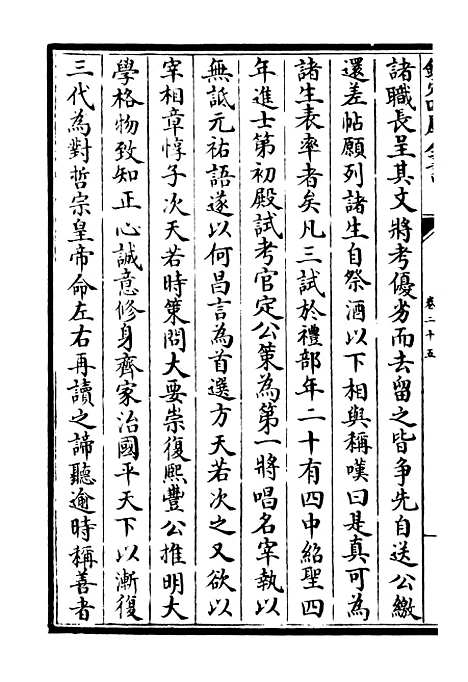 欽定四庫全書
卷二十五
諸職長呈其文將考優劣而去留之皆争先自送公繳
還差帖願列諸生自祭酒以下相與稱嘆曰是真可為
諸生表率者矣凡三試於禮部年二十有四中紹聖四
年進士第初殿試考官定公策為第一將唱名宰執以
無詆元祐語遂以何昌言為首選方天若次之又欲以
宰相章惇子次天若時策問大要崇復熙豐公推明大
學格物致知正心誠意修身齊家治國平天下以漸復
三代為對哲宗皇帝命左右再讀之諦聽逾時稱善者